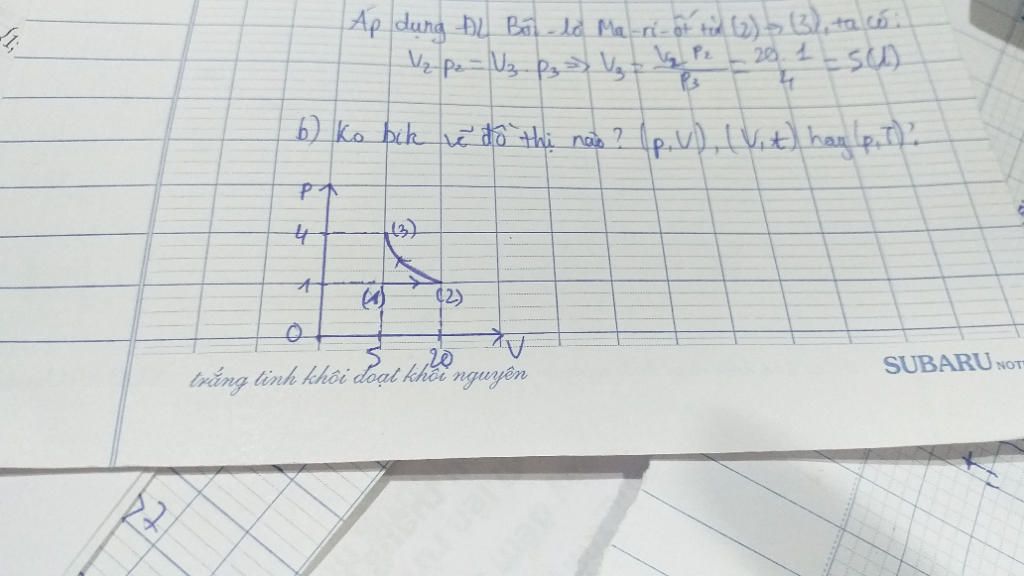 Áp dụng ĐL Bôi-lơ Ma-ri-ốt từ (2) → (3), ta có:
V₂ p₂ = V₃ . p₃ ⇒ V₃ = V₂ p₂ / p₃ = 20 . 1 / 4 = 5 (l)
b) Ko bch vẽ đồ thị nào? (p,V), (V,t) hay (p,T)?
P
4 (3)
1 (1) (2)
O 5 20 V
trắng tinh khôi đoạt khôi nguyên
SUBARU NOTE